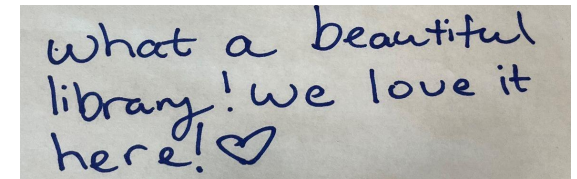 what a beautiful
library! we love it
here! ♡